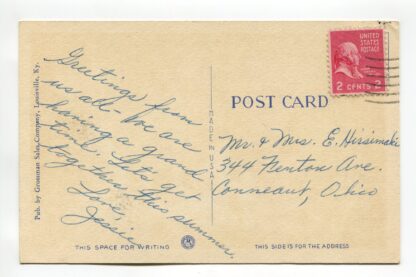 Pub. by Grossman Sales Company, Louisville, Ky.
Greetings from
us all - We are
having a grand
time. Let's get
together this summer.
Love,
Jessie
THIS SPACE FOR WRITING
MADE IN USA
UNITED
STATES
POSTAGE
2 CENTS 2
POST CARD
Mr. & Mrs. E. Hirsimaki
344 Fenton Ave.
Conneaut, Ohio
THIS SIDE IS FOR THE ADDRESS